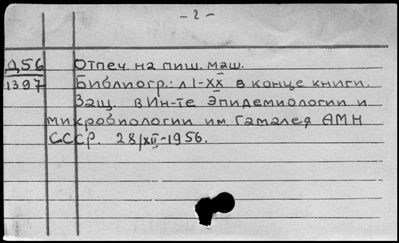 - 2 -
Д56 Отпеч. на пиш. маш.
1397 Библиогр.: л I-XX в конце книги.
Защ. в Ин-те Эпидемиологии и
микробиологии им. Гамалея АМН
СССР. 28/XII-1956.